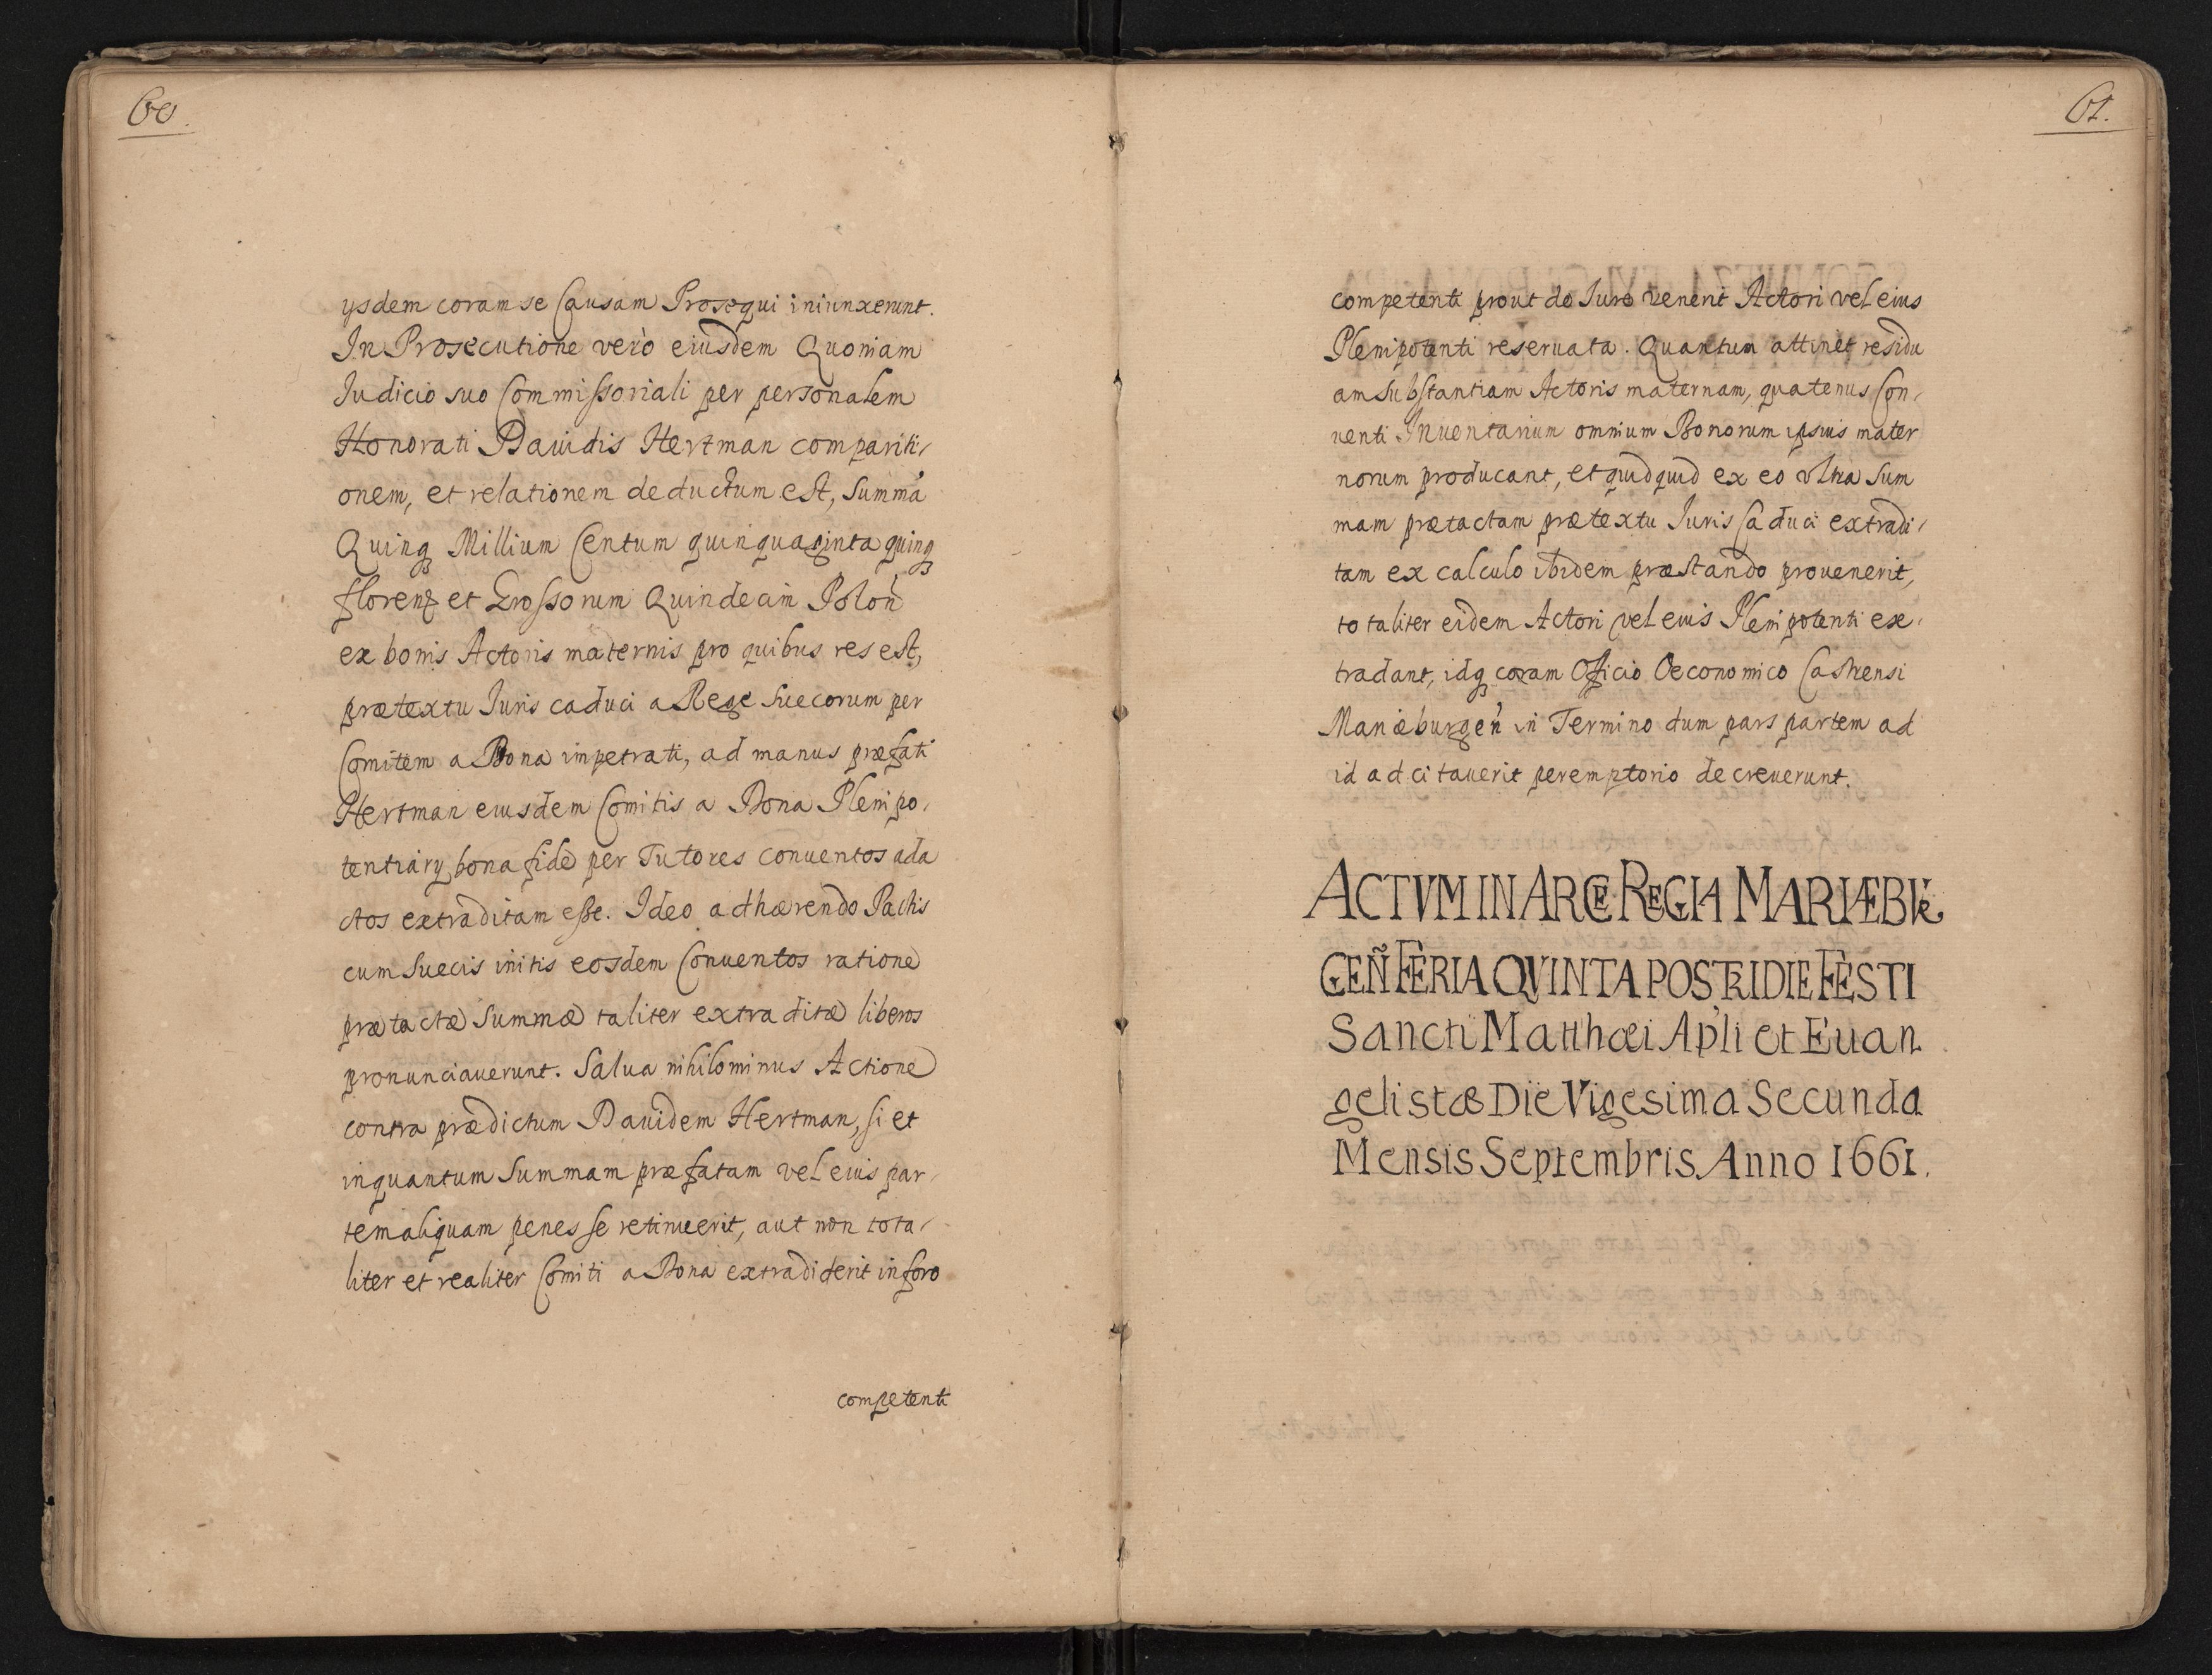 60.
ysdem coram se Causam Prosequi iniunxerunt.
In Prosecutione verò eiusdem Quoniam
Iudicio suo Commissoriali per personalem
Honorati Dauidis Hertman compariti-
onem, et relationem deductum est, summa
Quinq Millium Centum quinquaginta quinq
floren et Grossorum Quindecim Polon
ex bonis Actoris maternis pro quibus res est,
prætextu Iuris caduci a Rege Suecorum per
Comitem a Dona impetrati, ad manus præfati
Hertman eiusdem Comitis a Dona Plenipo-
tentiarÿ bona fide per Tutores conuentos ada
ctos extraditam esse. Ideo adhærendo Pactis
cum Suecis initis eosdem Conuentos ratione
prætactæ Summæ taliter extraditæ liberos
pronunciauerunt. Salua nihilominus Actione
contra prædictum Dauidem Hertman, si et
inquantum Summam præfatam vel eius par-
tem aliquam penes se retinuerit, aut non tota-
liter et realiter Comiti a Dona extradiderit in foro
competenti
61.
competenti prout de Iure venerit Actori vel eius
Plenipotenti reseruata. Quantum attinet residu
am substantiam Actoris maternam, quatenus Con-
uenti Inuentarium omnium Bonorum ipsius mater
norum producant, et quidquid ex eo vltra Sum
mam prætactam prætextu Iuris Caduci extradi-
tam ex calculo ibidem præstando prouenerit,
totaliter eidem Actori vel eius Plenipotenti ex-
tradant, idq coram Officio Oeconomico Castrensi
Mariæburgen in Termino dum pars partem ad
id adcitauerit peremptorio decreuerunt.
ACTVM IN ARCE REGIA MARIÆBVR
GEÑ FERIA QVINTA POSTRIDIE FESTI
Sancti Matthæi Apli et Euan
gelistæ Die Vigesima Secunda
Mensis Septembris Anno 1661.